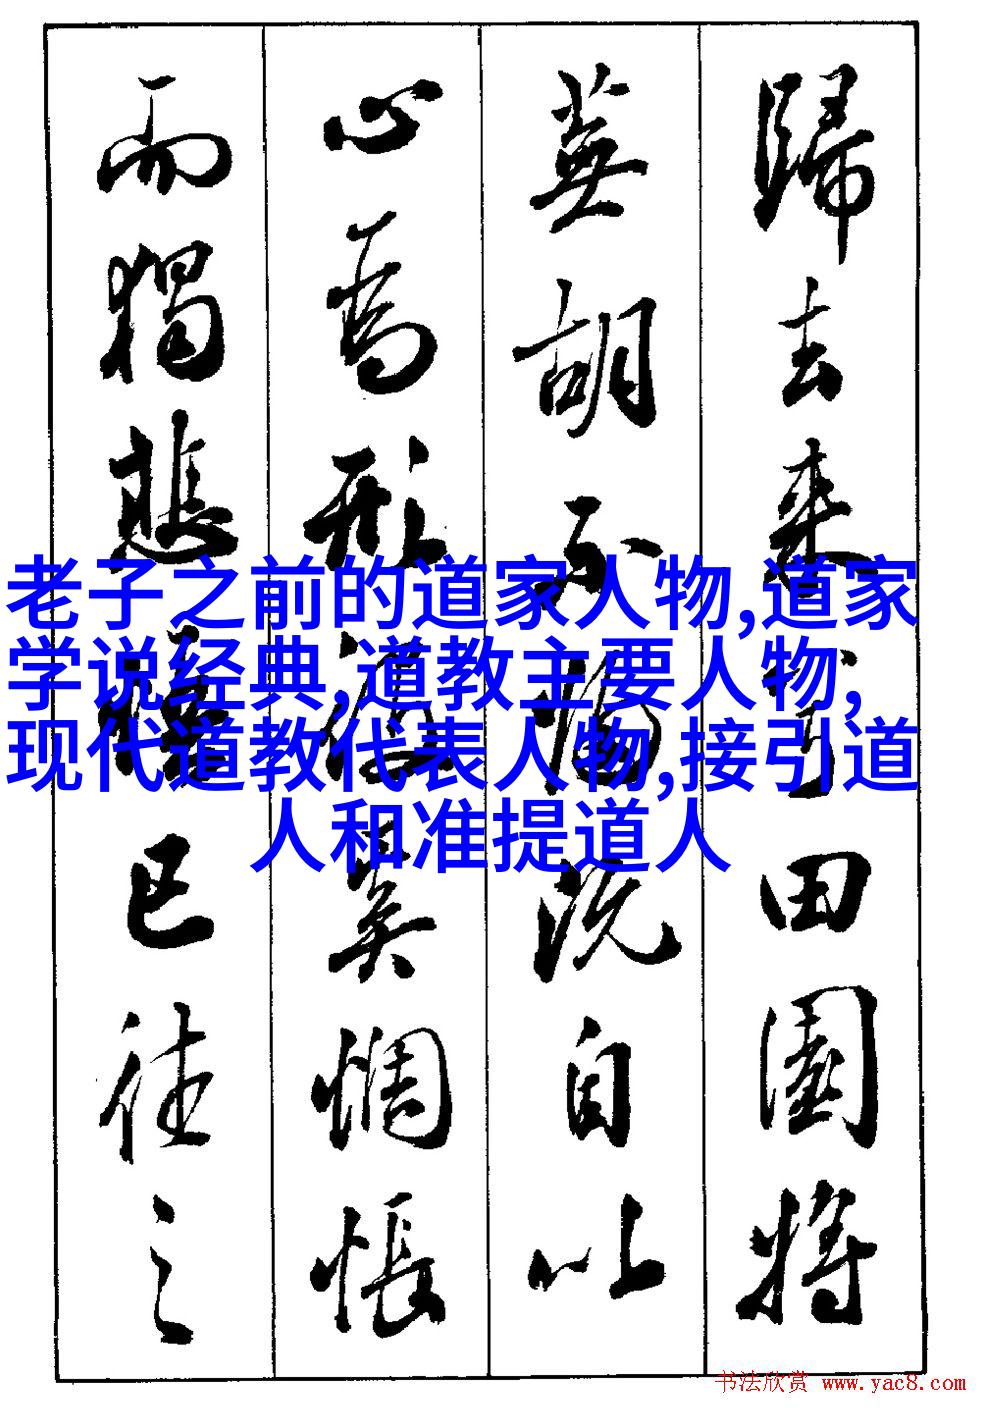 歸去来兮田園將
蕪胡不歸既自以
心為形役奚惆悵
而獨悲悟已往之
老子之前的道家人物,道家
学说经典,道教主要人物,
现代道教代表人物,接引道
人和准提道人
书法欣赏 www.yac8.com